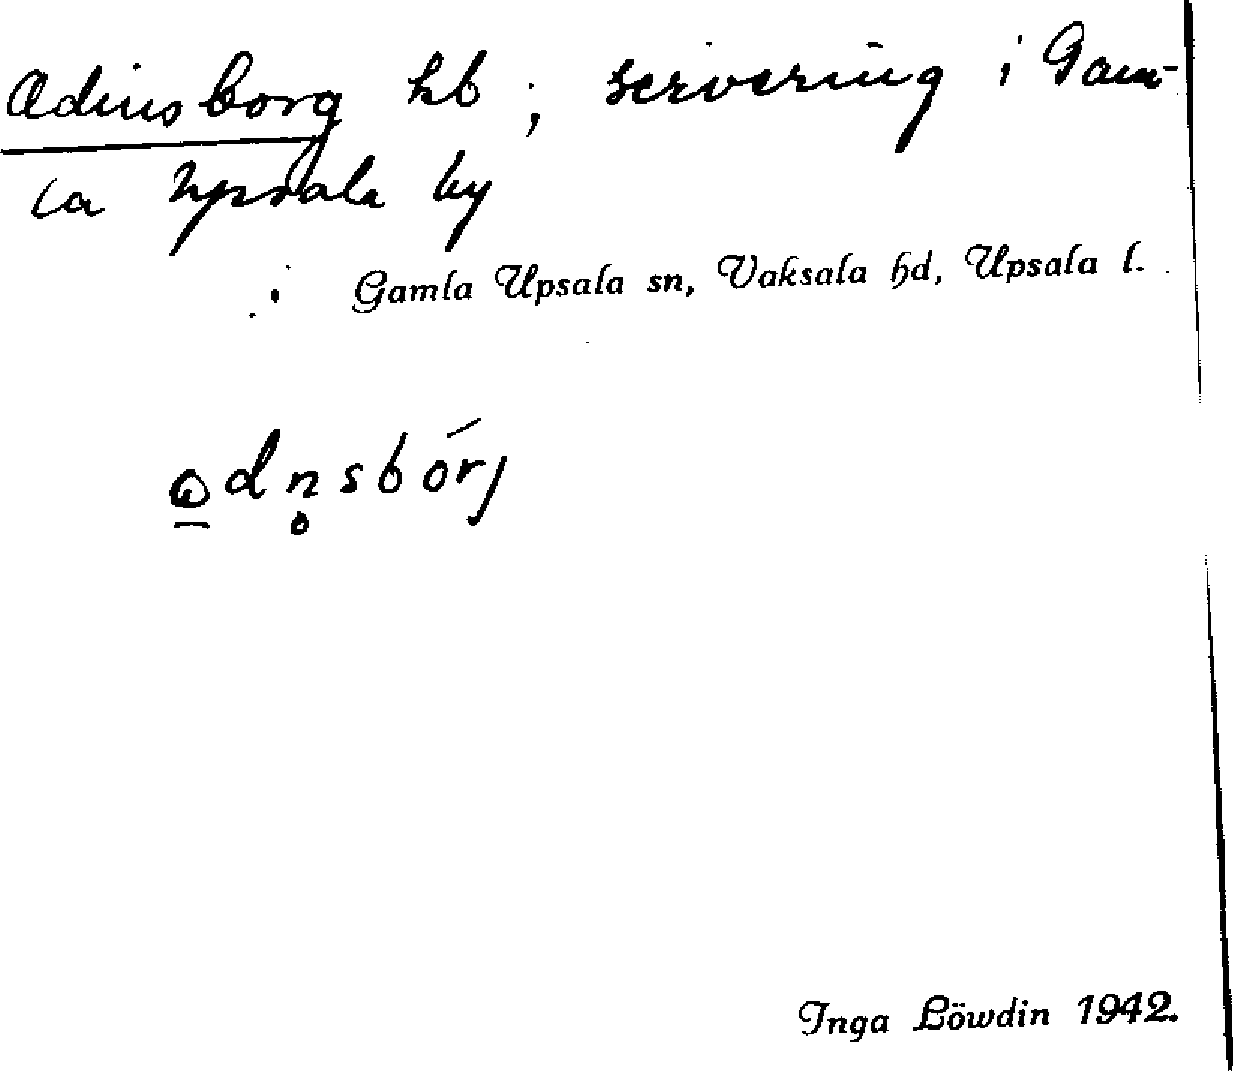 Odinsborg hb ; servering i Gam-
la Upsala by
Gamla Upsala sn, Vaksala hd, Upsala l.
Inga Löwdin 1942.